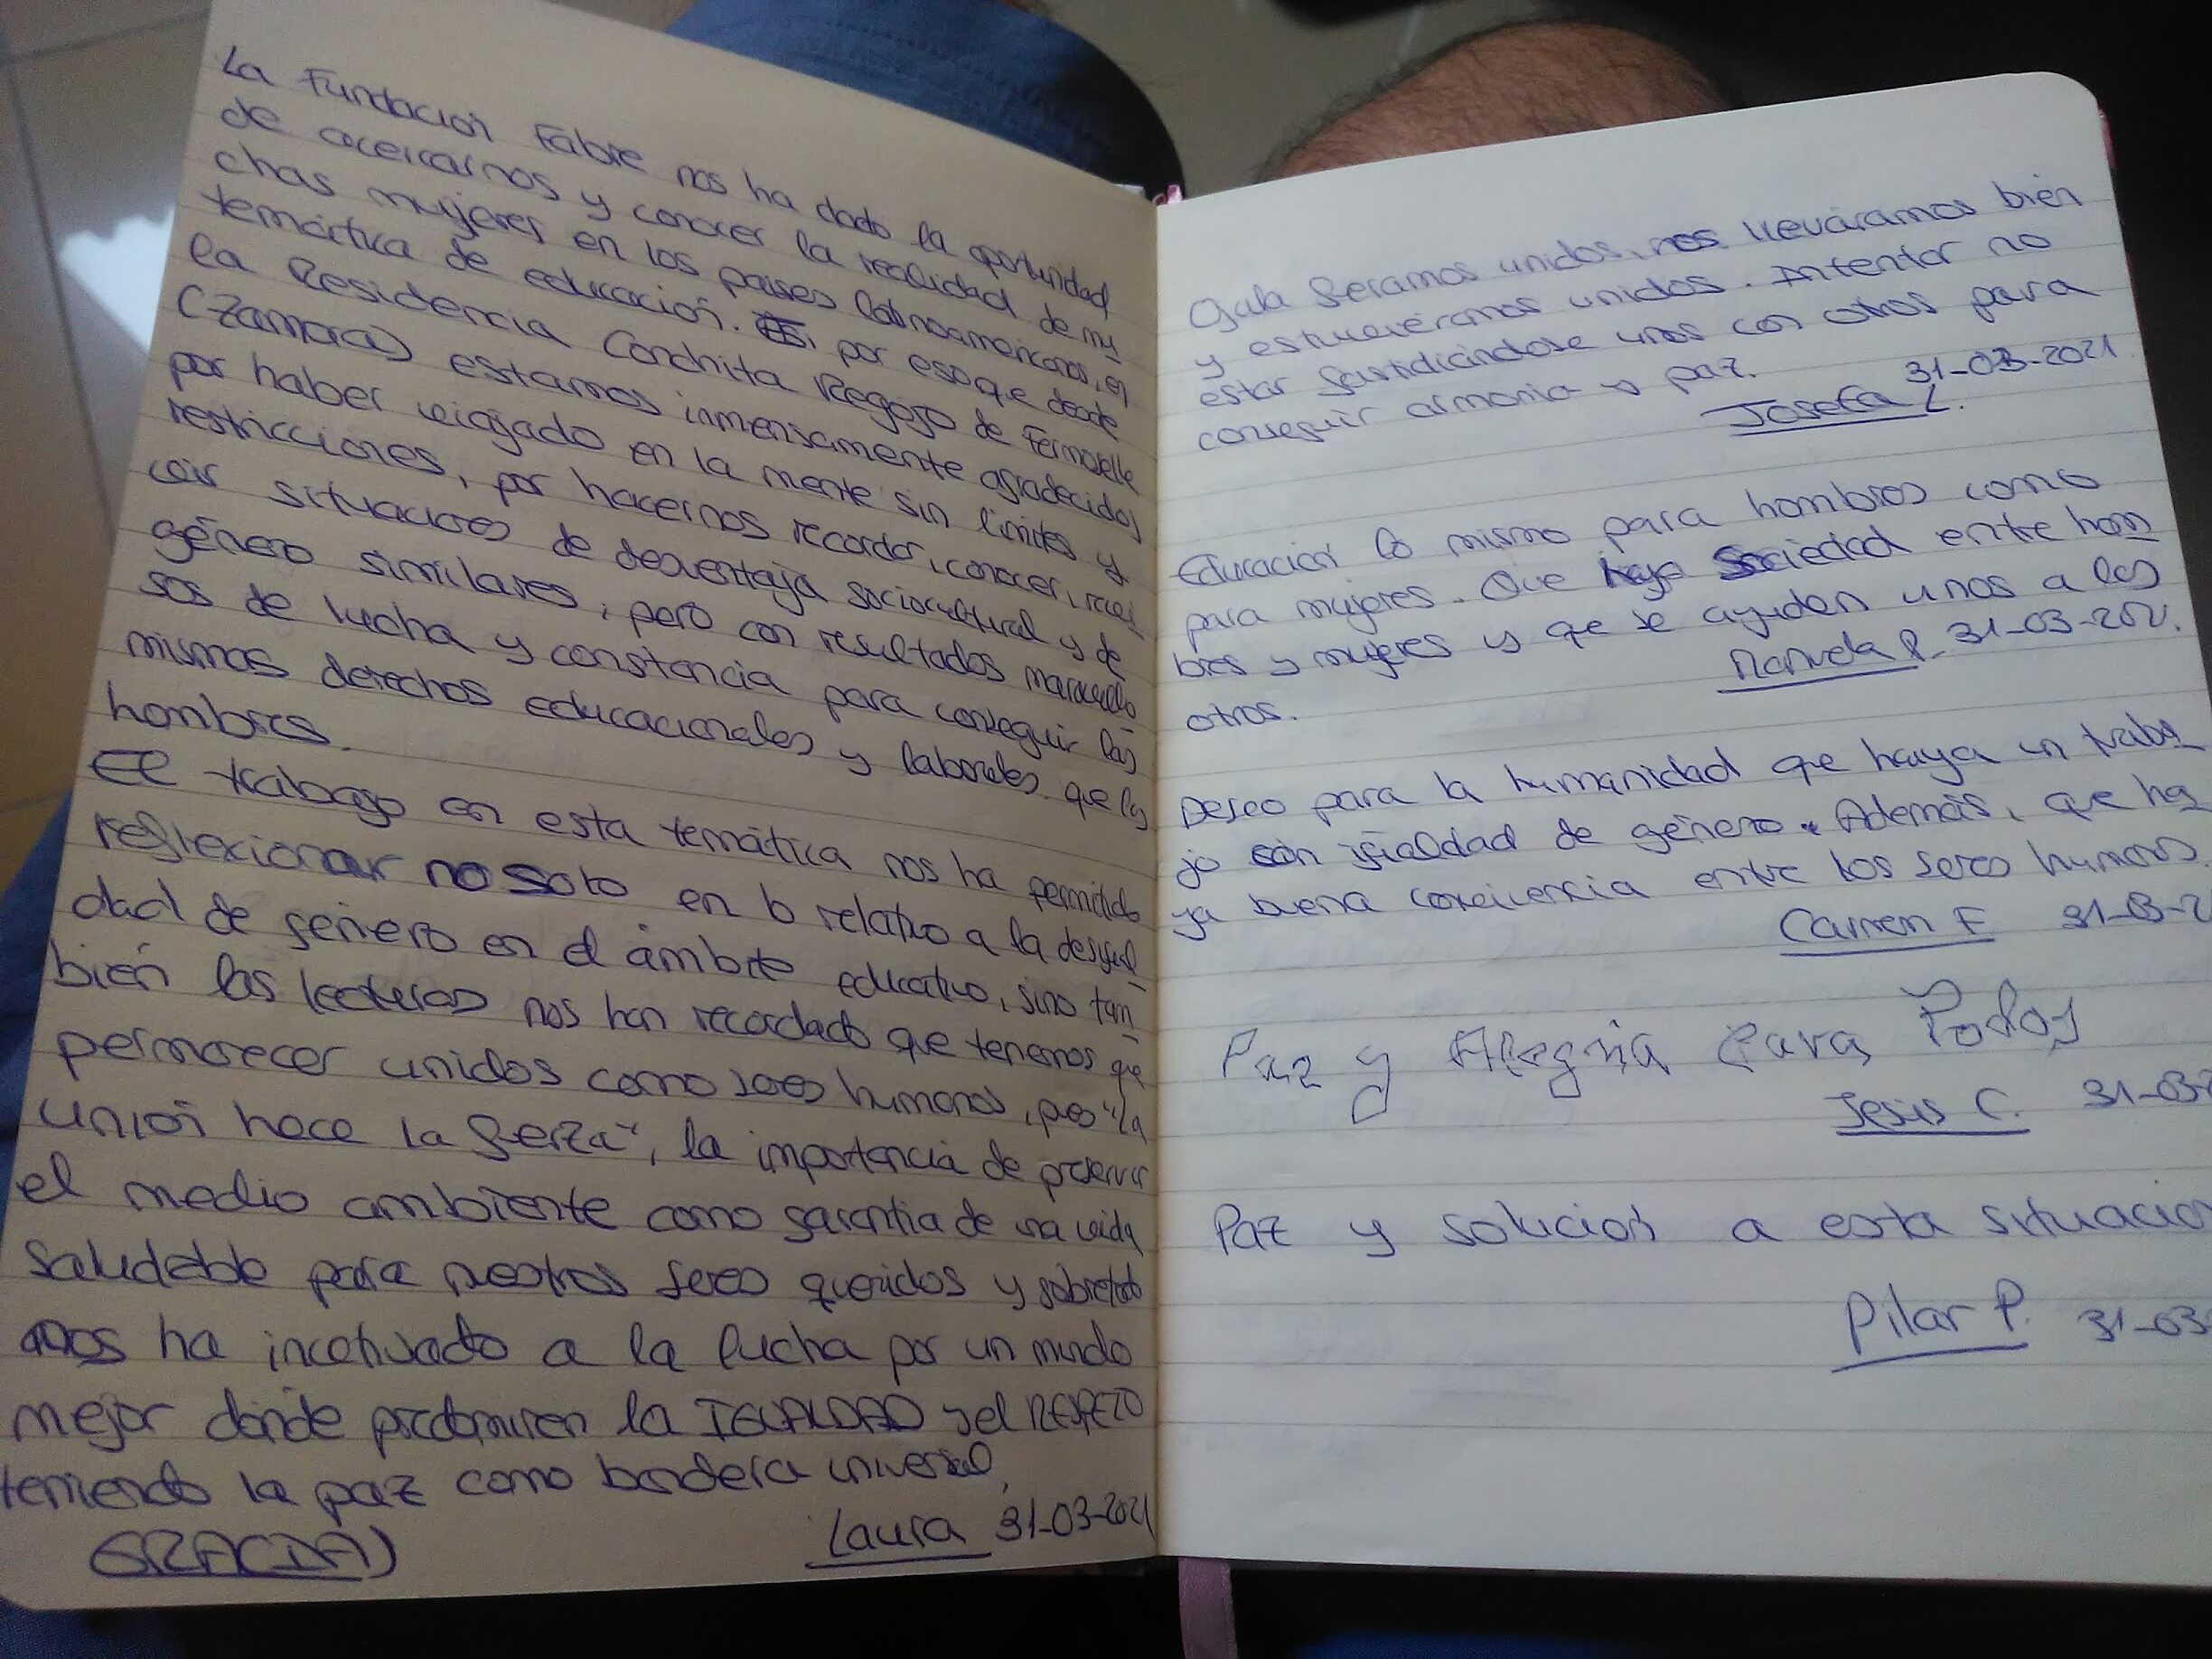 La Fundación Fabre nos ha dado la oportunidad
de acercarnos y conocer la realidad de mu
chas mujeres en los paises latinoamericanos, en
temática de educación. por eso que desde
la Residencia Conchita Regojo de Fermoselle
(Zamora) estamos inmensamente agradecidos
por haber viajado en la mente sin límites y
restricciones, por hacernos recordar, conocer, revi
vir situaciones de desventaja sociocultural y de
género similares, pero con resultados maravillo
sos de lucha y constancia para conseguir los
mismos derechos educacionales y laborales que los
hombres.
El trabajo en esta temática nos ha permitido
reflexionar no solo en lo relativo a la desigual
dad de género en el ámbito educativo, sino tam
bién las lecturas nos han recordado que tenemos que
permanecer unidos como seres humanos, pues "la
unión hace la fuerza", la importancia de preservar
el medio ambiente como garantía de una vida
saludable para nuestros seres queridos y sobretodo
nos ha incetivado a la lucha por un mundo
mejor dónde predominen la IGUALDAD y el RESPETO
teniendo la paz como bandera universal,
GRACIAS
Laura 31-03-2021
Ojala fueramos unidos, nos lleváramos bien
y estuvieramos unidos. Intentar no
estar fastidiándose unos con otros para
conseguir armonia y paz.
31-03-2021
Josefa Z.
Educación lo mismo para hombres como
para mujeres. Que haya Sociedad entre hom
bres y mujeres y que se ayuden unos a los
otros.
Manuela P. 31-03-2021.
Deseo para la humanidad que haya un traba
jo con igualdad de género. Además, que ha
ya buena convivencia entre los seres humanos.
Carmen F. 31-03-2
Paz y Alegria Para Todos
Jesús C. 31-03-2
Paz y solución a esta situacion
Pilar P. 31-03-